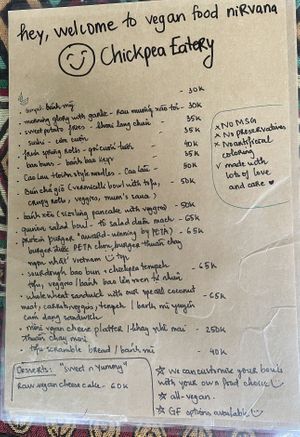 hey, welcome to vegan food nirvana
Chickpea Eatery
bánh mỳ - 30K
morning glory with garlic - Rau muống xào tỏi - 30K
sweet potato fries - khoai lang chiên - 35K
sushi - cơm cuộn - 35K
fresh spring rolls - gỏi cuốn tươi - 35K
bao buns - bánh bao kẹp - 40K
Cao Lau Hoian style noodles - Cao lầu - 35K
Bún chả giò (vermicelli bowl with tofu, - 50K
crispy rolls, veggies, mum's sauce)
bánh xèo (sizzling pancake with veggies) - 50K
quinoa salad bowl - tô salad diêm mạch - 65K
protein burger "award-winning by PETA) - 65K
burger được PETA chọn, burger thuần chay
ngon nhất Vietnam top
sourdough bao bun + chickpea tempeh - 65K
tofu, veggies / bánh bao lên men tự nhiên
whole wheat sandwich with our special coconut - 65K
meat, carrots, veggies, tempeh / bánh mì nguyên
cám dạng sandwich
mini vegan cheese platter / khay phô mai - 250K
thuần chay mini
tofu scramble bread / bánh mì - 40K
x No MSG
x No preservatives
x No artificial
coloring
✓ made with
lots of love
and care
Desserts: "sweet n yummy"
Raw vegan cheesecake - 60K
☆ we can customise your bowls
with your own food choice
☆ all-vegan
☆ GF options available